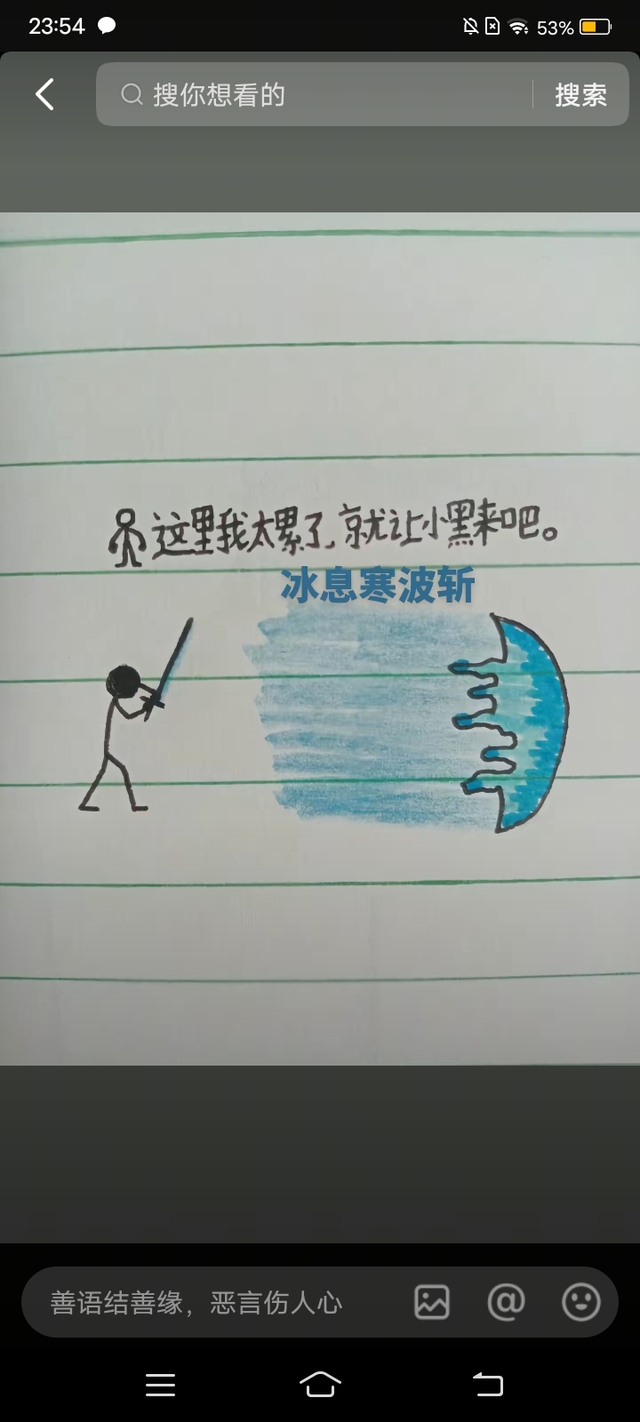 23:54
53%
搜你想看的
搜索
这里我太累了，就让小黑来吧。
冰息寒波斩
善语结善缘，恶言伤人心